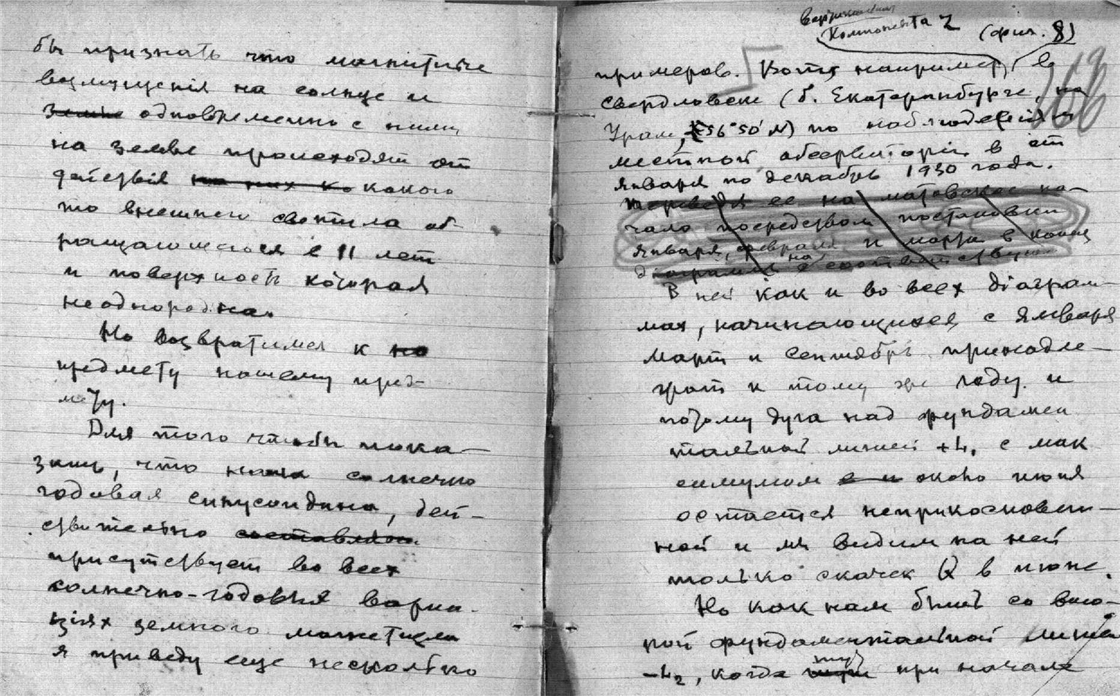 бы признать что магнитные
возмущенія на солнце и
земле одновременно с ними
на земле происходят от
действія на них ко какого
то внешнего светила об-
ращающегося в 11 лет
и поверхность которая
неоднородна.
Но возвратимся к но
предмету нашему пред-
мету.
Для того чтобы пока-
зать, что наша солнечно
годовая синусоидина, дей-
ствительно составляет
присутствует во всех
солнечно-годовых вариа-
ціях земного магнетизма
я приведу еще несколько
Вертикальная
Компонента Z (фиг. 8)
примеров. Хотя например, в
Свердловске (б. Екатеринбурге, на
Урале, 56°50' N) по наблюденіям
местной обсерваторіи в от
января по декабрь 1930 года.
переведя ее на матовское на-
чало посредством постановки
января, февраля и марта в конец
діаграммы
В ней как и во всех діаграм-
мах, начинающихся с Января
март и сентябрь принадле-
жат к тому же году и
потому дуга над фундамен
тальной линіей +L, с мак
симумом в и около июня
остается неприкосновен-
ной и мы видим на ней
только скачек Q в июне.
Но как нам быть со вто-
рой фундаментальной линіей
-L₂, когда тут при начале